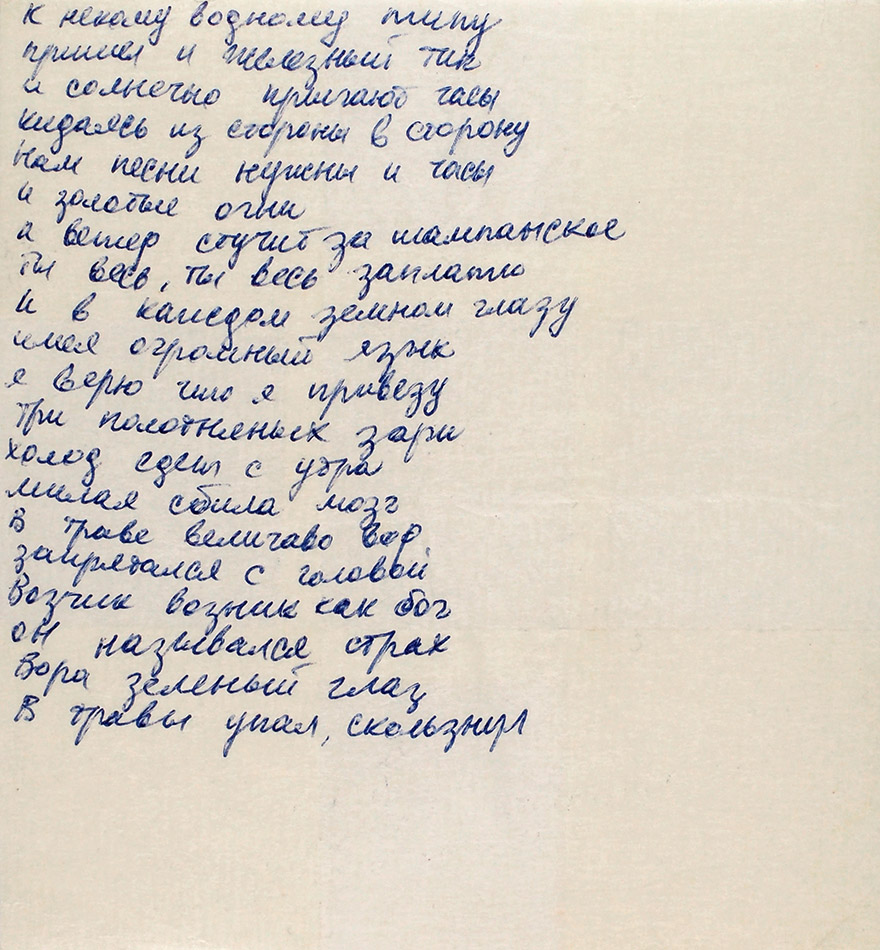 к некому водному типу
пришел и железный тик
и солнечно прыгают часы
кидаясь из стороны в сторону
нам песни нужны и часы
и золотые огни
а ветер стучит за шампанское
ты весь, ты весь заплатио
и в каждом земном глазу
имея огромный язык
я верю что я привезу
три полотняных зари
холод сдел с утра
милая сбила мозг
В траве величаво вор
запрятался с головой
Возчик возник как бог
он назывался страх
Вора зеленый глаз
В травы упал, скользнул